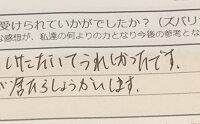 受けられていかがでしたか？（ズバリ
な感想が、私達の何よりの力となり今後の参考とな
いただいてうれしかったです。
が居たらしょうかいします。